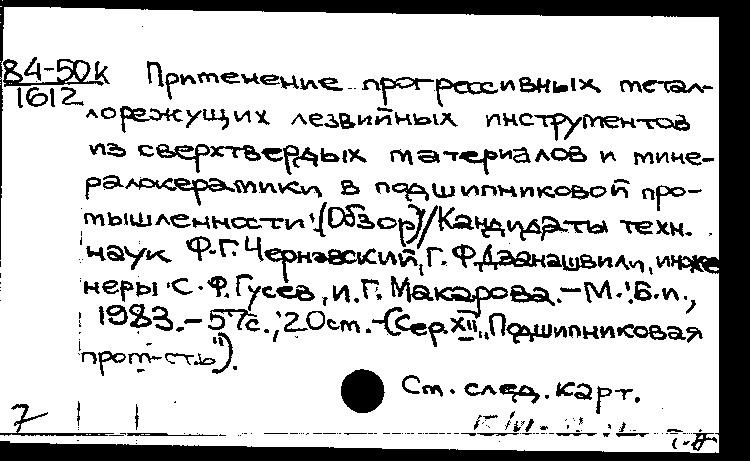 84-50к Применение прогрессивных метал-
1612 лорежущих лезвийных инструментов
из сверхтвердых материалов и мине-
ралокерамики в подшипниковой про-
мышленности: (Обзор)/Кандидаты техн.
наук Ф.Г. Чернавский, Г.Ф. Дзанашвили, инже
неры С.Ф. Гусев, И.Г. Макарова. - М.: Б.и.,
1983. - 57с.; 20см. - (Сер. XII, "Подшипниковая
пром-сть").
См. след. карт.
7